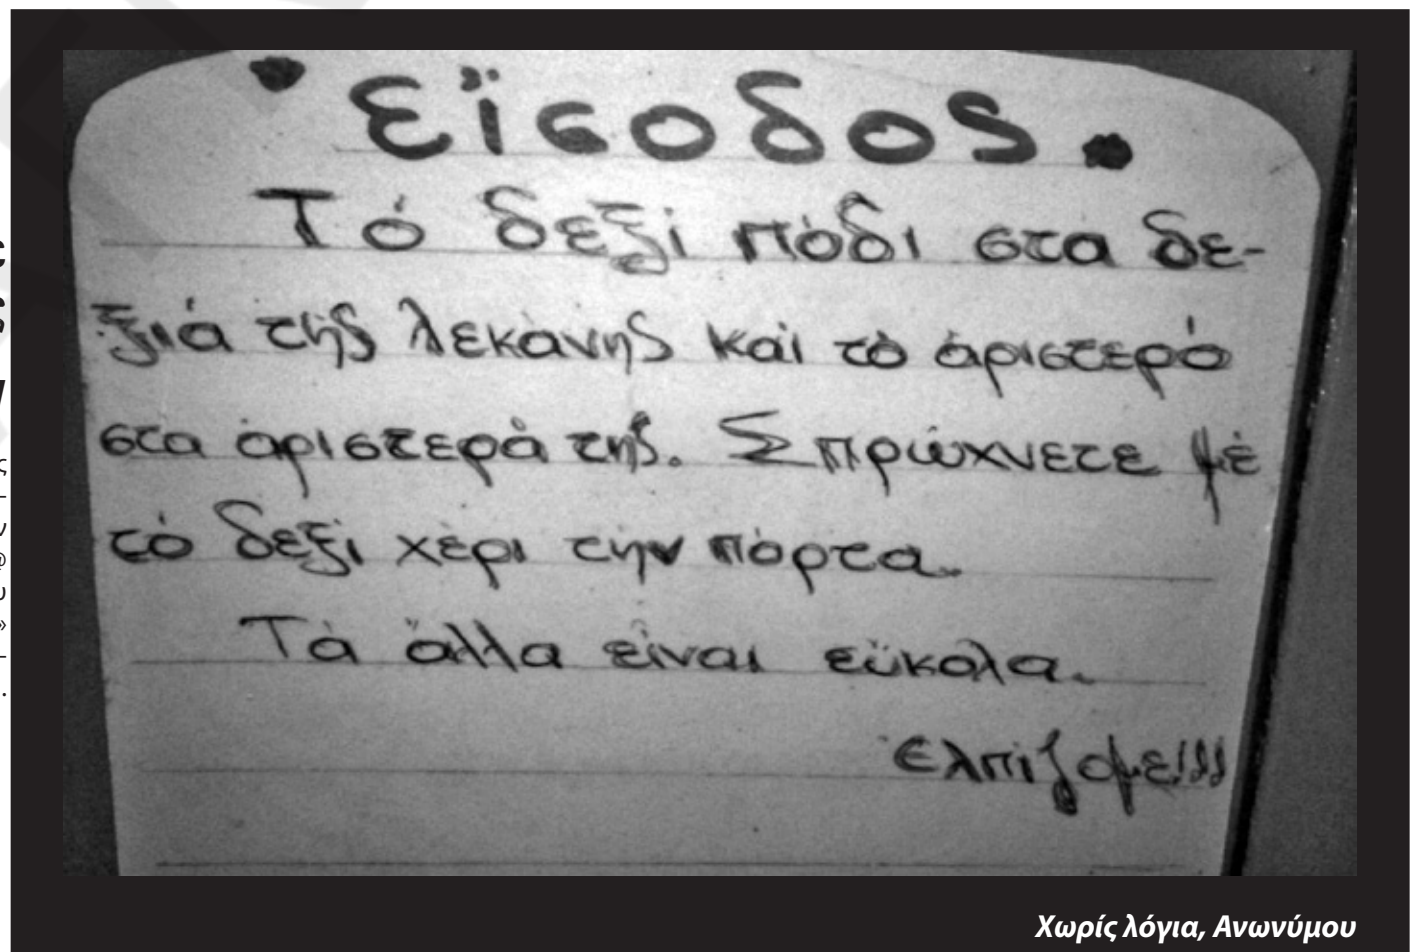 • Εἴσοδος.
Τό δεξί πόδι στα δε-
ξιά τῆς λεκάνης καί τό ἀριστερό
στα ἀριστερά τῆς. Σπρώχνετε μέ
τό δεξί χέρι τήν πόρτα.
Τά ἄλλα εἶναι εὔκολα.
Ἐλπίζομε!!!
Χωρίς λόγια, Ανωνύμου